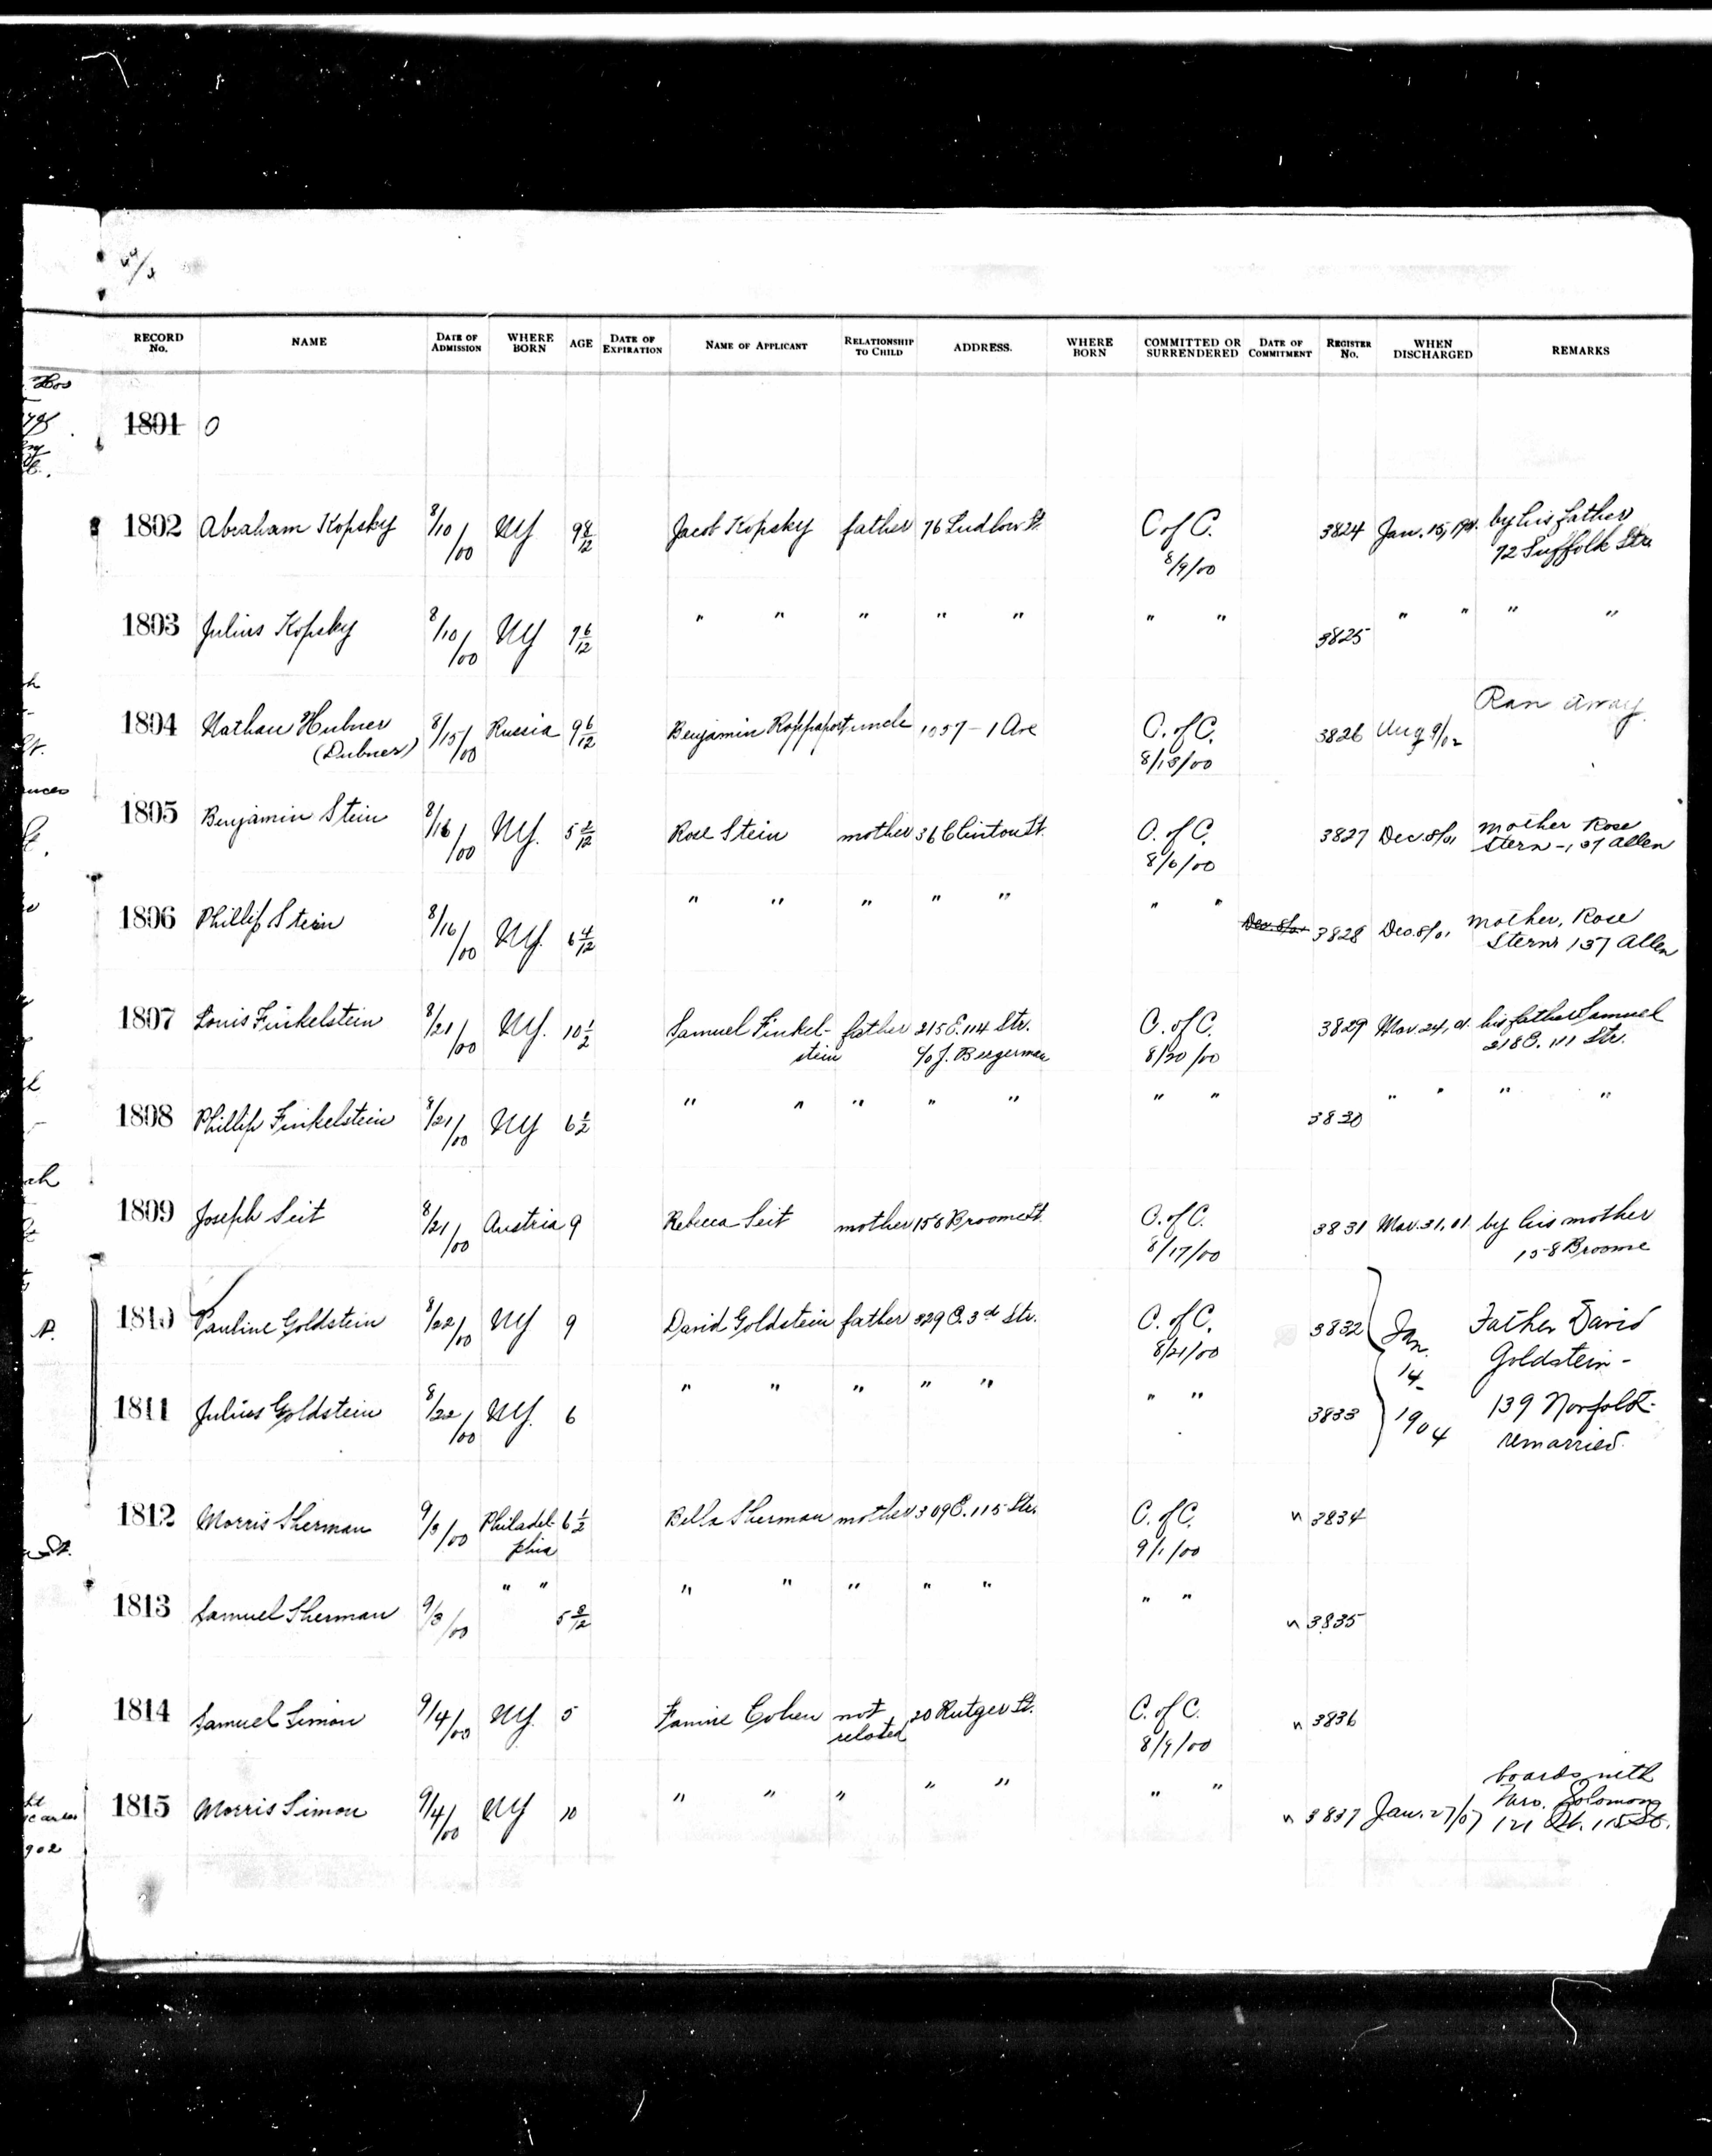 RECORD No. NAME DATE OF ADMISSION WHERE BORN AGE DATE OF EXPIRATION NAME OF APPLICANT RELATIONSHIP TO CHILD ADDRESS. WHERE BORN COMMITTED OR SURRENDERED DATE OF COMMITMENT REGISTER No. WHEN DISCHARGED REMARKS
1801 0
1802 Abraham Kopsky 8/10/00 NY 9 8/12 Jacob Kopsky father 76 Ludlow St. C of C. 8/9/00 3824 Jan. 15, by his father
72 Suffolk Str.
1803 Julius Kopsky 8/10/00 NY 7 6/12 " " " " " " " 3825 " " " "
1804 Nathan Hubner 8/15/00 Russia 9 6/12 Benjamin Rappaport uncle 1057 - 1 Ave C. of C. 8/13/00 3826 Aug 9/02 Ran away.
(Dubner)
1805 Benjamin Stein 8/16/00 NY. 5 2/12 Rose Stein mother 36 Clinton St. C. of C. 8/6/00 3827 Dec. 8/01 mother Rose
Stern - 137 Allen
1806 Phillip Stein 8/16/00 NY. 6 4/12 " " " " " " " Dec. 8/01 3828 Dec. 8/01 mother, Rose
Stern 137 Allen
1807 Louis Finkelstein 8/21/00 NY. 10 1/2 Samuel Finkel- father 215 E. 114 Str. C. of C. 3829 Mar. 24, 01. his father Samuel
stein c/o J. Bergerman 8/20/00 218 E. 111 Str.
1808 Phillip Finkelstein 8/21/00 NY 6 1/2 " " " " " " " 3830 " " " "
1809 Joseph Seit 8/21/00 Austria 9 Rebecca Seit mother 158 Broome St. C. of C. 8/17/00 3831 Mar. 31, 01. by his mother
158 Broome
1810 Pauline Goldstein 8/22/00 NY 9 David Goldstein father 329 E. 3d Str. C. of C. 8/21/00 3832 Jan. Father David
14- Goldstein -
1811 Julius Goldstein 8/22/00 NY. 6 " " " " " " " 3833 1904 139 Norfolk -
remarried.
1812 Morris Sherman 9/3/00 Philadel- 6 1/2 Bella Sherman mother 309 E. 115 Str. C. of C. n 3834
phia 9/1/00
1813 Samuel Sherman 9/3/00 " " 5 8/12 " " " " " " " n 3835
1814 Samuel Simon 9/4/00 NY. 5 Fannie Cohen not 20 Rutger St. C. of C. n 3836
related 8/9/00
1815 Morris Simon 9/4/00 NY 10 " " " " " " " n 3837 Jan. 27/07 boards with
Mrs. Solomon
121 W. 115 St.